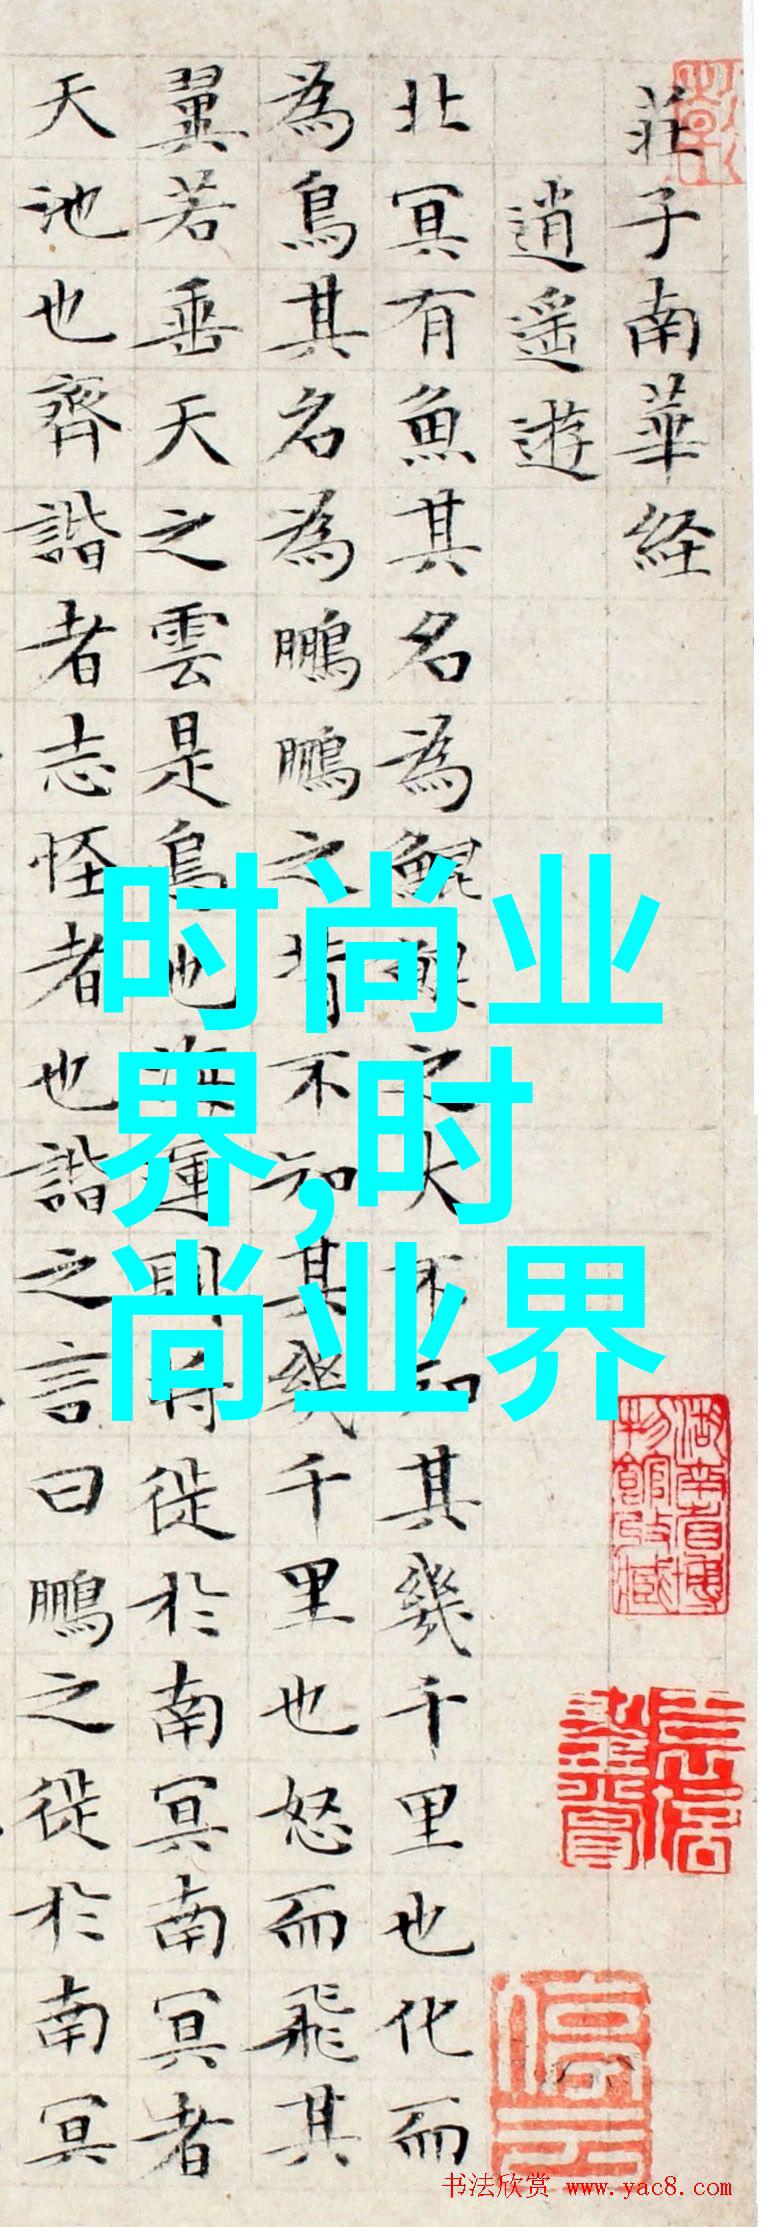 莊子南華経
逍遥遊
北冥有魚其名為鯤鯤之大不知其幾千里也化而
為鳥其名為鵬鵬之背不知其幾千里也怒而飛其
翼若垂天之雲是鳥也海運則将徙於南冥南冥者
天池也齊諧者志怪者也諧之言曰鵬之徙於南冥
时尚业
界,时
尚业界
湖南省博
物館收藏
停云
书法欣赏 www.yac8.com